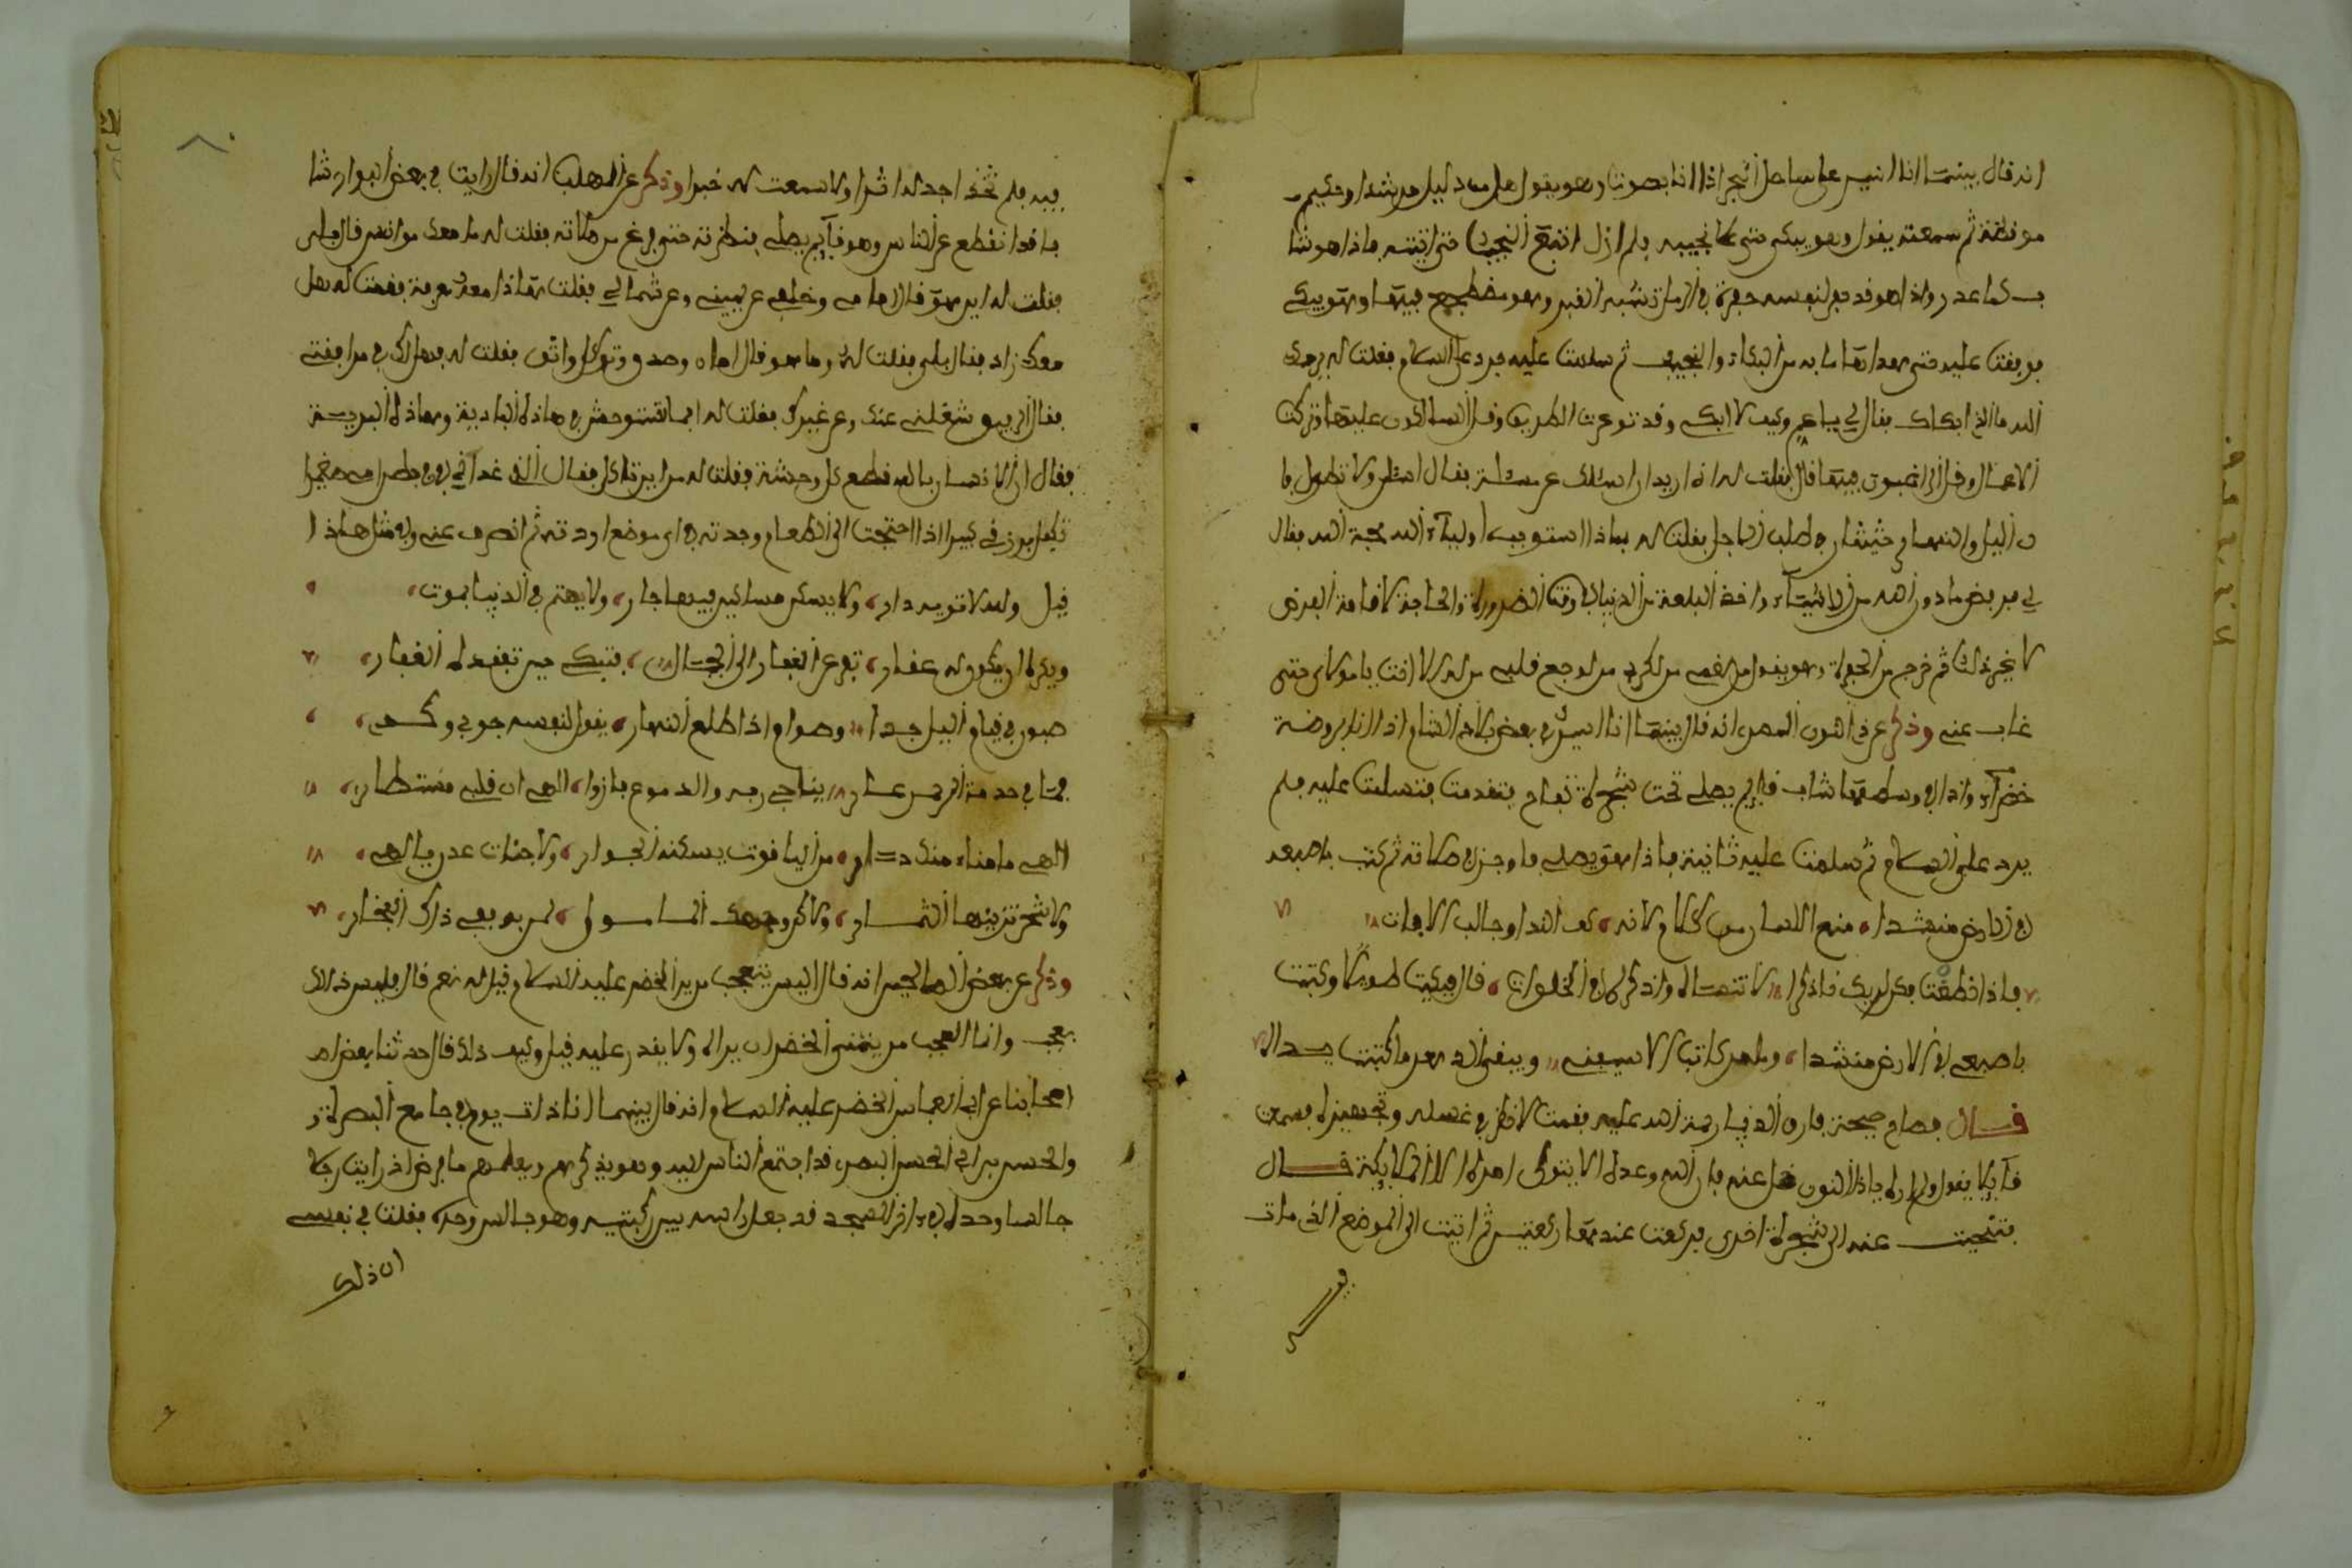 انه قال بينما انا اسير على ساحل البحر اذا انا بصوت وهو يقول هل من دليل مرشد او حكيم
موفظة ثم سمعته يقول وهو يبكى حتى كا نحيبه فلم ازل اتبع النحيب حتى اتيته فاذا هو شا
ب كما عذر واذا هو قد جعل لنفسه حفرة في الرمل تشبه القبر وهو مضطجع فيها وهو يبكي
فوقفت عليه حتى هدا مما به من البكاء والنحيب ثم سلمت عليه فرد علي السلام فقلت له يرحمك
الله ما الذي ابكاك فقال لي يا عم وكيف لا ابكي وقد توعرت الطريق وقل السالكون عليها وتركت
الاعمال وقل الراغبون فيها قال فقلت له اني اريد ان اسئلك عن مسئلة فقال اسئل ولا تطول فا
ن اليل والنهار حثيثان في طلب الاجل فقلت له بماذا استوجب اولياء الله محبة الله فقال
لي برفض ما دون الله من الاشياء واخذ البلغة من الدنيا في وقت الضرورة والحاجة لاقامة الفرض
لا غير ذلك ثم خرج من الحفرة وهو يقول من لغمي من لكربي من لوجع قلبي من له الا انت يا مولاي حتى
غاب عني وذكر عن ذي النون المصري انه قال بينما انا اسير في بعض بلاد الشام اذا انا بروضة
خضراء واذا في وسطها شاب قايم يصلي تحت شجرة تفاح فتقدمت فسلمت عليه فلم
يرد علي السلام ثم سلمت عليه ثانية فاذا هو يصلي فاوجز في صلاته ثم كتب باصبعه
في الارض منشدا منع اللسان من الكلام لانه كهف الندا وجالب الافات
فاذا نطقت فكن لربك ذاكرا لا تنساه واذكره في الخلوات قال فبكيت طويلا وكتبت
باصبعي في الارض منشدا وما من كاتب الا سيفنى ويبقى الدهر ما كتبت يداه
قال فصاح صيحة فارق الدنيا رحمة الله عليه فقمت لاخذ في غسله وتجهيزه فسمعت
قايلا يقول يا ذا النون خل عنه فان الله وعده الا يتولى امره الا الملايكة قال
فتنحيت عنه الى شجرة اخرى فركعت عندها ركعتين ثم اتيت الى الموضع الذي مات
فيه
فيه فلم اجد له اثرا ولا سمعت له خبرا وذكر عن المهلب انه قال رايت في بعض البوار شا
با قد انقطع عن الناس وهو قايم يصلي فنظرته حتى فرغ من صلاته فقلت له ما معك مؤانس قال بلى
فقلت له اين هو قال امامي وخلفي عن يميني وعن شمالي فقلت ان هذا معه معرفة فقلت له هل
معك زاد فقال بلى فقلت له وما هو قال اخلاص وصدق وتوكل واثق فقلت له هل لك في مرافقتي
فقال الرفيق شغلني عنك وعن غيرك فقلت له اما تستوحش في هاذه البادية وهاذه البرية
فقال ان الانس بالله قطع كل وحشة فقلت له من اين تاكل فقال الذي غذاني في بطن امي صغيرا
تكفل برزقي كبيرا اذا احتجت الى الطعام وجدته في اي موضع اردته ثم انصرف عني وفي مثل هاذا
قيل ولله لا تويه دار ولا يسكن مسائير فيها جار ولا يهتم في الدنيا بموت
ويكره ان يكون له عقار تفر من القفار الى الجبال فتبكي حين تفقده القفار
صبور في قيام اليل جدا وصوام اذا طلع النهار يقول لنفسه جودي وكدي
فما في خدمة الرحمن عار يناجي ربه والدموع غزار الهي ان قلبي مستطار
الهي ما مناي منك دار من اليا قوت يسكنه الجوار ولا جنات عدن يا الهي
ولا شجر تزينها الثمار ولكن وجهك المامول لمن يوفي ذاك الفخار
وذكر عن بعض الصالحين انه قال ليس يتعجب ممن يرى الخضر عليه السلام قيل له نعم قال فليس ذلك
بعجب وانما العجب ممن يتمنى الخضر ان يراه ولا يقدر عليه قيل وكيف ذلك قال حدثنا بعض
اصحابنا عن ابي العباس الخضر عليه السلام انه قال بينما انا ذات يوم في جامع البصرة
والحسن بن ابي الحسن البصري قد اجتمع الناس اليه وهو يذكرهم ويعلمهم ما فرض اذ رايت رجلا
جالسا وحده في اخر المسجد قد جعل راسه بين ركبتيه وهو جالس وحده فقلت في نفسي
ان ذلك